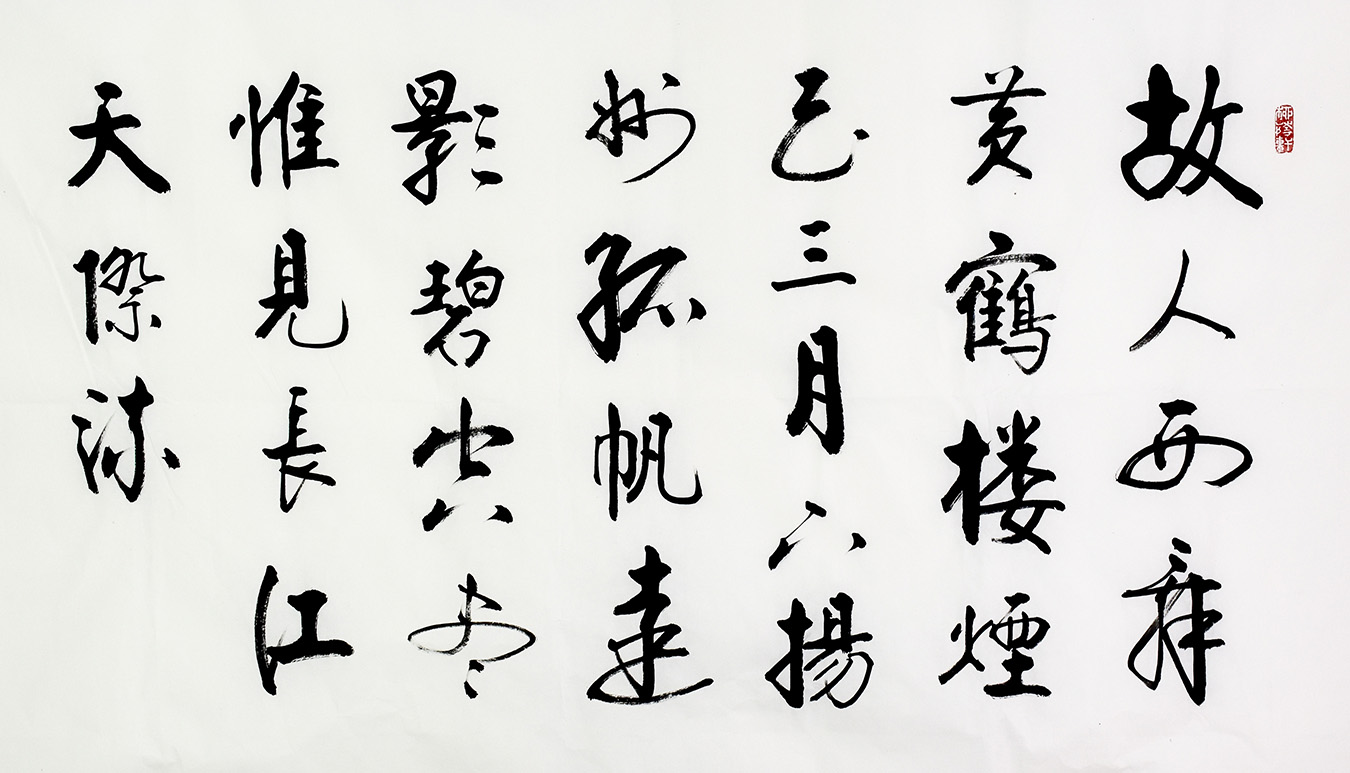 故人西辞
黄鶴楼煙
花三月下揚
州孤帆遠
影碧空尽
惟見長江
天際流